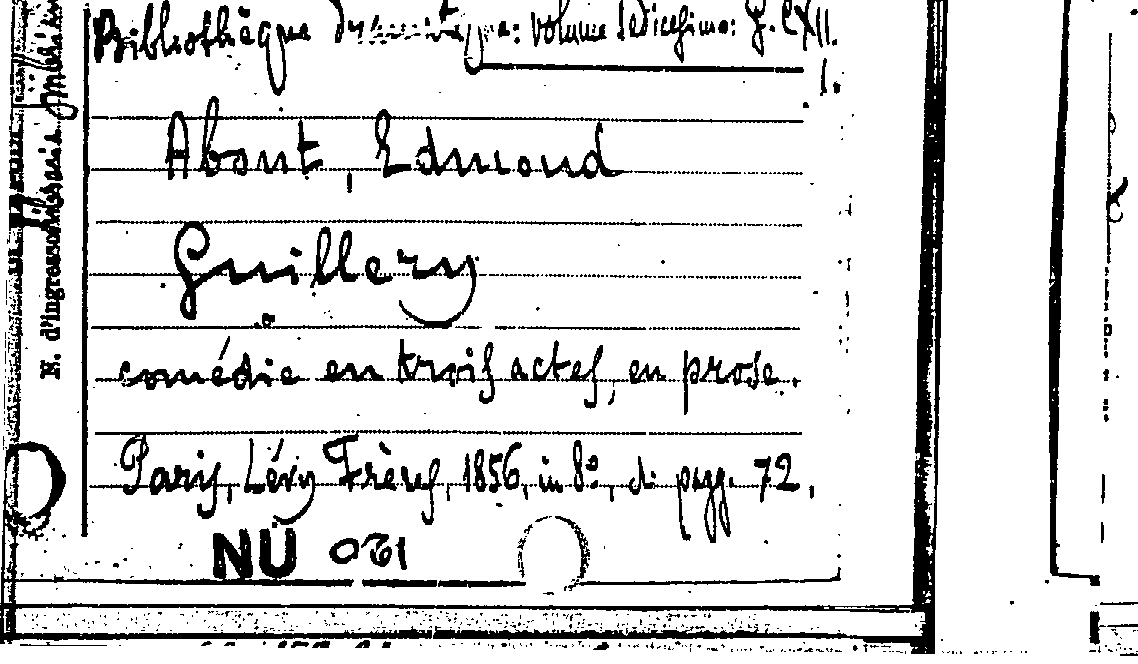 Bibliothèque dramatique: volume sedicesimo: J. CXII.
1.
About, Edmond
Guillery
comédie en trois actes, en prose.
Paris, Lévy Frères, 1856, in 8º, di pagg. 72.
NU 031
N. d'ingresso